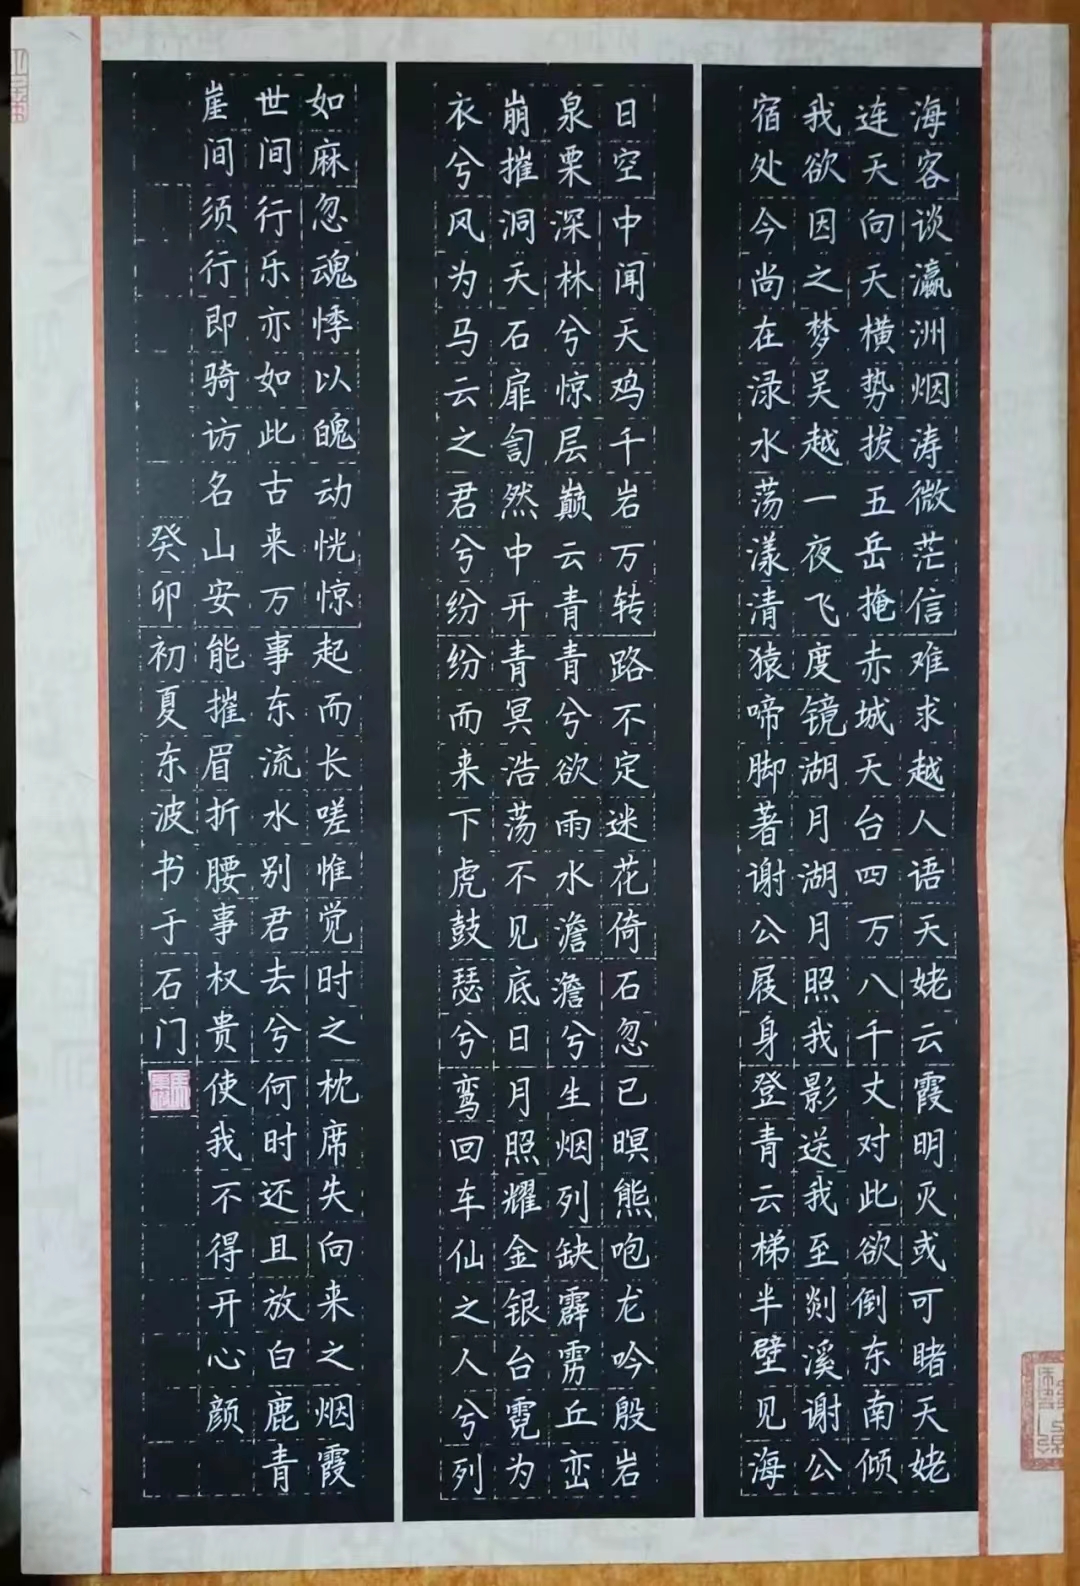 海客谈瀛洲烟涛微茫信难求越人语天姥云霞明灭或可睹天姥
连天向天横势拔五岳掩赤城天台四万八千丈对此欲倒东南倾
我欲因之梦吴越一夜飞度镜湖月湖月照我影送我至剡溪谢公
宿处今尚在渌水荡漾清猿啼脚著谢公屐身登青云梯半壁见海
日空中闻天鸡千岩万转路不定迷花倚石忽已暝熊咆龙吟殷岩
泉栗深林兮惊层巅云青青兮欲雨水澹澹兮生烟列缺霹雳丘峦
崩摧洞天石扉訇然中开青冥浩荡不见底日月照耀金银台霓为
衣兮风为马云之君兮纷纷而来下虎鼓瑟兮鸾回车仙之人兮列
如麻忽魂悸以魄动恍惊起而长嗟惟觉时之枕席失向来之烟霞
世间行乐亦如此古来万事东流水别君去兮何时还且放白鹿青
崖间须行即骑访名山安能摧眉折腰事权贵使我不得开心颜
癸卯初夏东波书于石门